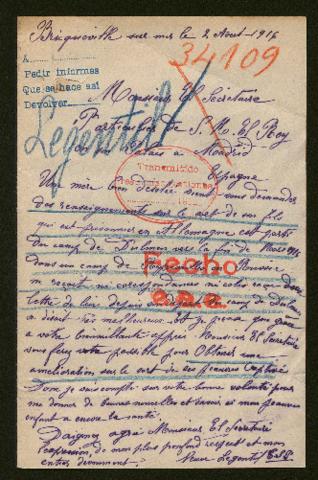 Bricqueville sur mer le 2 Aout 1916
34109
A
Pedir informes
Que se hace así
Devolver
Legentil
Monsieur El Sécrétaire
Particulier de S. M. El Rey
Palais a Madrid
Espagne
Transmitido
Une mère bien désolée vient vous demander
des renseignements sur le sort de son fils
qui est prisonnier en Allemagne est parti
du camp de Dulmen vers la fin de Mars
dans un camp de en Russie
ne reçoit ni correspondances ni colis reçu deux
lettre de lui depuis le camp de Dulmen
Fecho
a disant très malheureux que grace
a votre bienveillante auprès Monsieur El Secretaire
vous ferez votre possible pour obtenir une
amélioration sur le sort de ses pauvres captives
Donc je suis compte sur votre bonne volonté pour
me donner de bonnes nouvelles et savoir si mon pauvre
enfant a encore la santé
Daignez agréé Monsieur El Secretaire
l'expression de mon plus profond respect et mon
entier devouement
Veuve Legentil